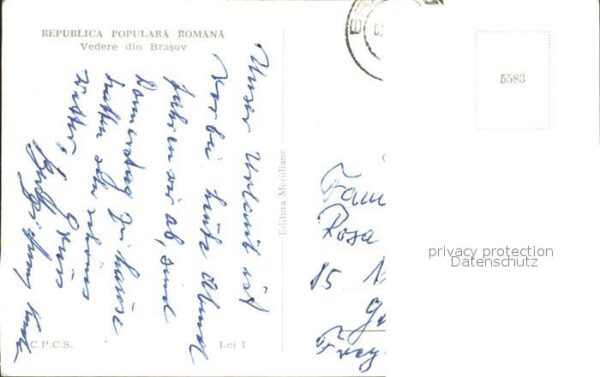 REPUBLICA POPULARĂ ROMÂNĂ
Vedere din Brașov
Unser Urlaub ist
vorbei heute Abend
fahren wir ab, sind
Donnerstag zu Hause
hatten sehr schönes
Wetter,
Gruss
C.P.C.S.
Lei 1
Editura Meridiane
5583
Fam
Rosa
85
privacy protection
Datenschutz